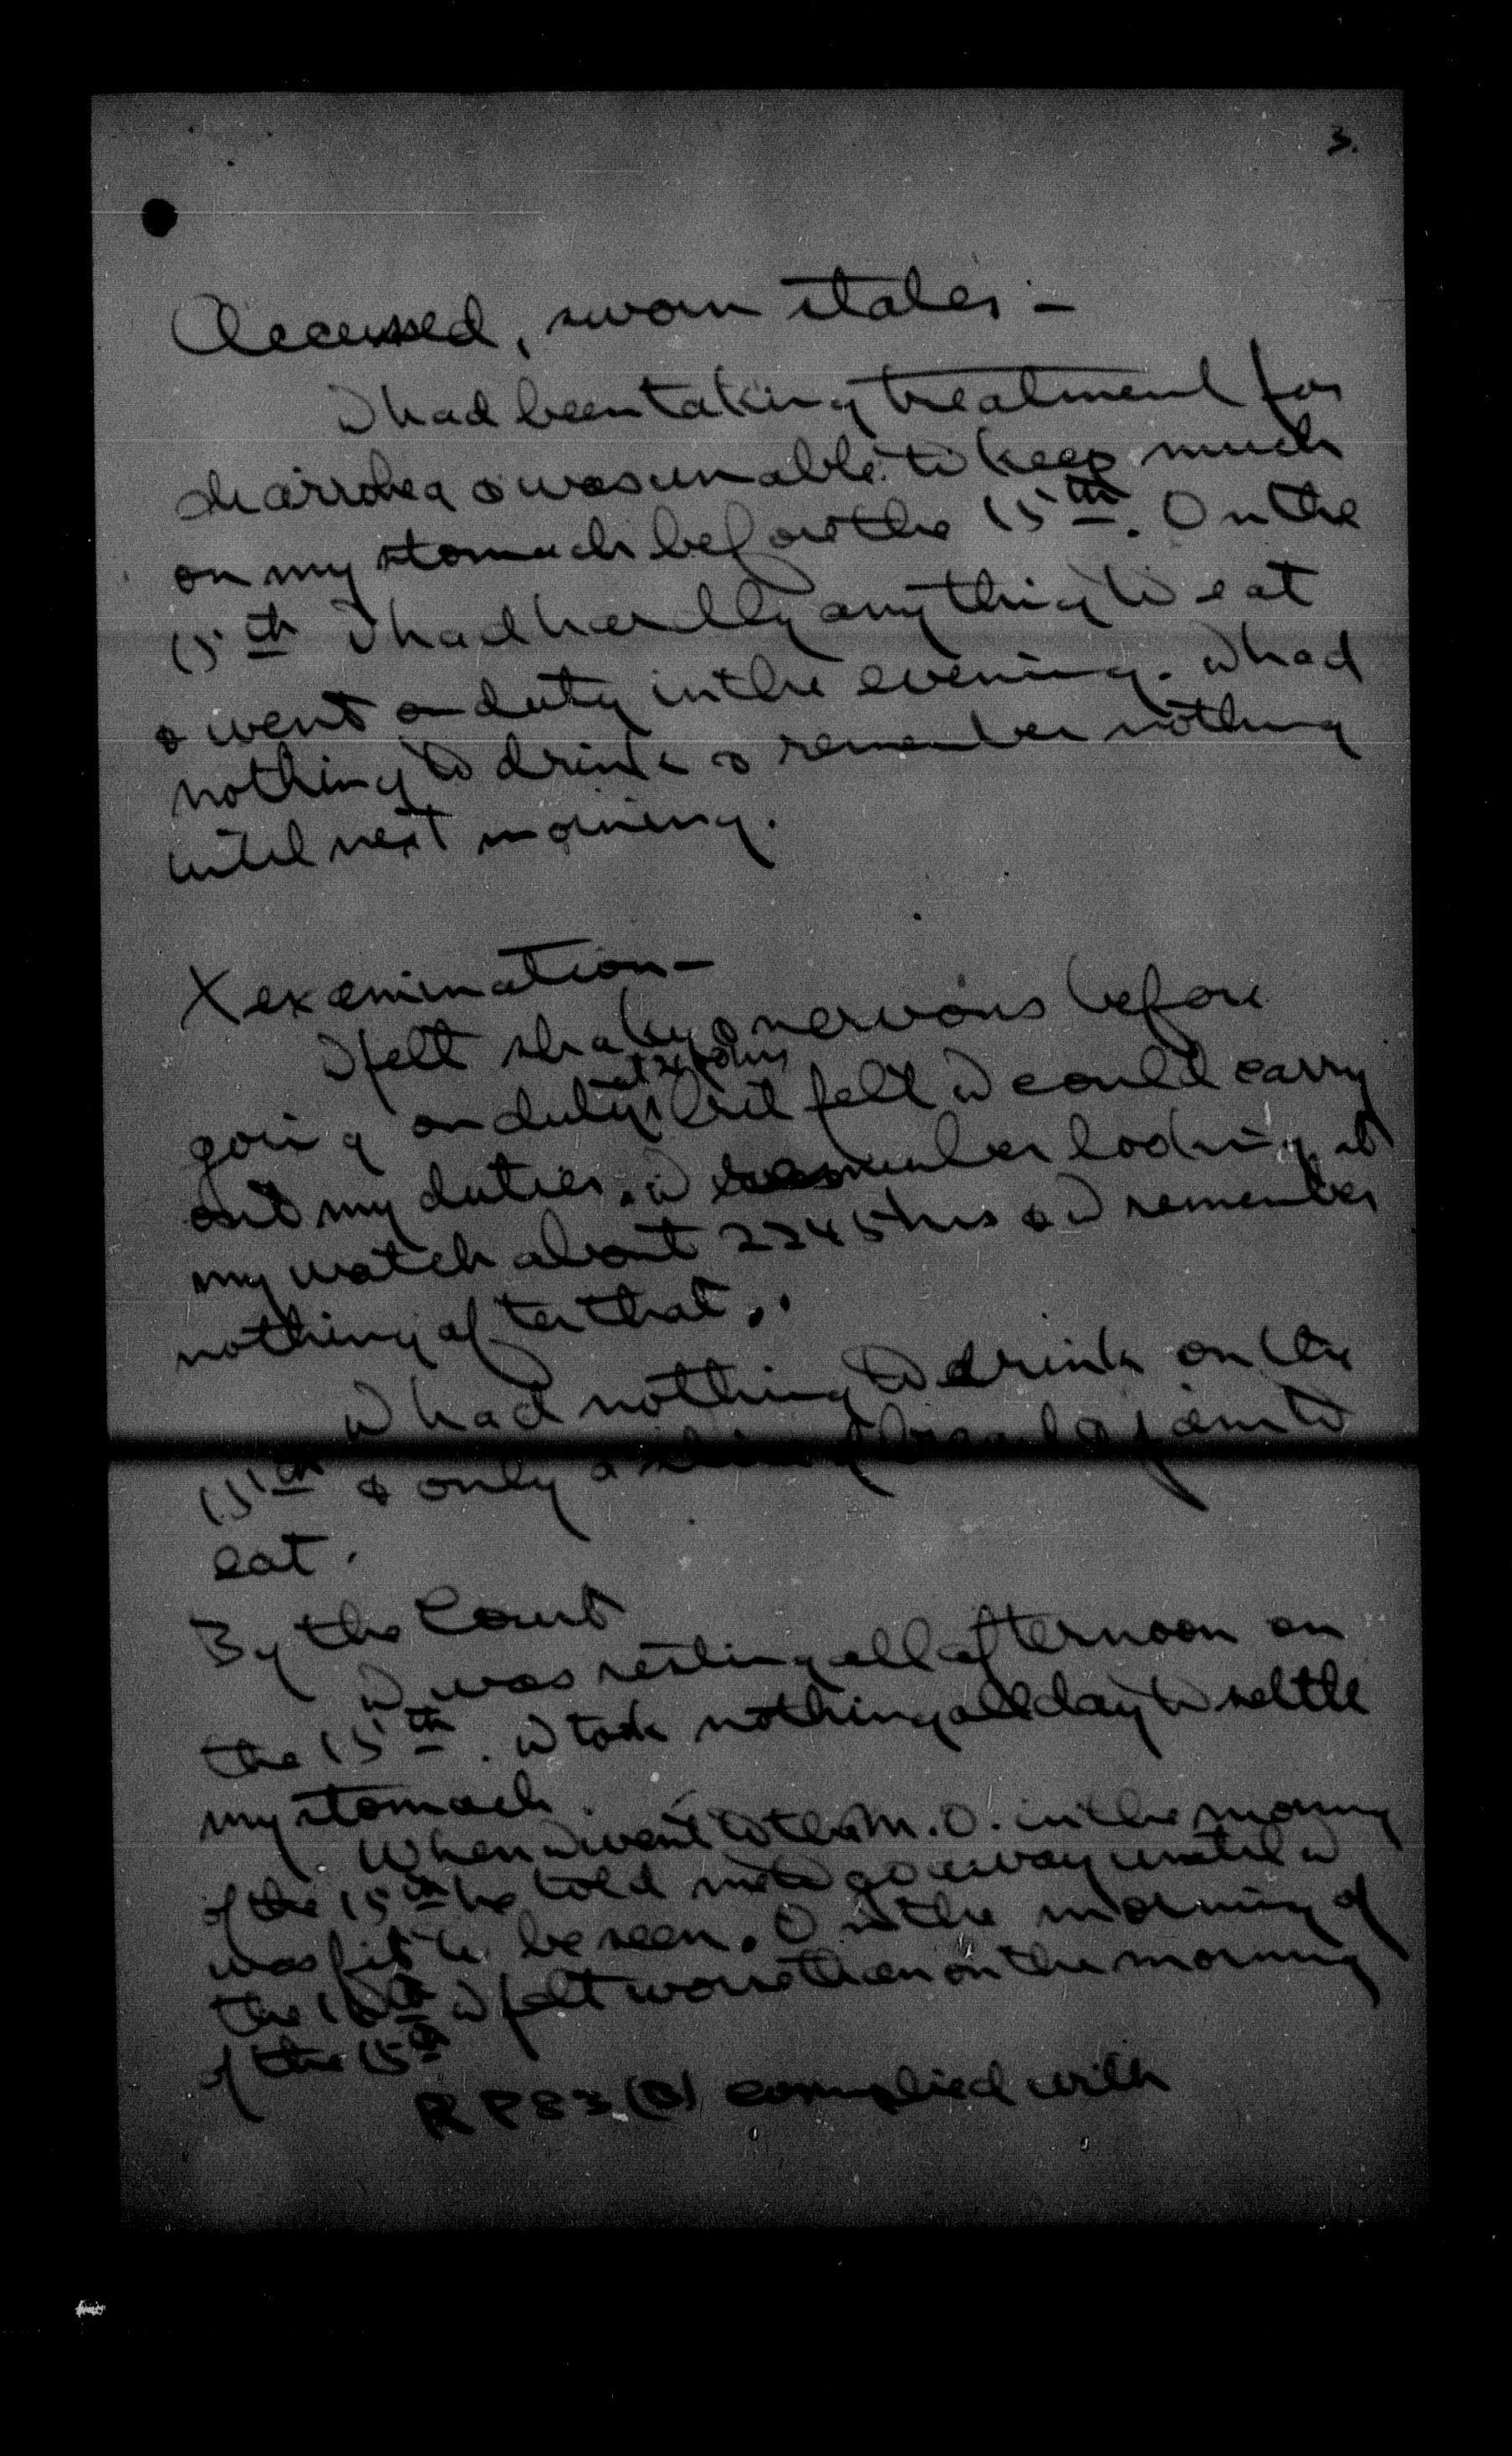 3.
Accussed, sworn states –
I had been taking treatment for
dhairrohea & was unable to keep much
on my stomach before the 15th. On the
15th I had hardly anything to eat
& went on duty in the evening. I had
nothing to drink & remember nothing
until next morning.
X examination –
I felt shaky & nervous before
going on duty but felt I could carry
out my duties. I remember looking at
my watch about 2245 hrs & I remember
nothing after that.
I had nothing to drink on the
15th & only a bread & jam to
eat.
By the Court
I was resting all afternoon on
the 15th. I took nothing all day to settle
my stomach.
When I went to the M.O. in the morning
of the 15th he told me to go away until I
was fit to be seen. On the morning of
the 16th I felt worse than on the morning
of the 15th
RP 83 (B) complied with